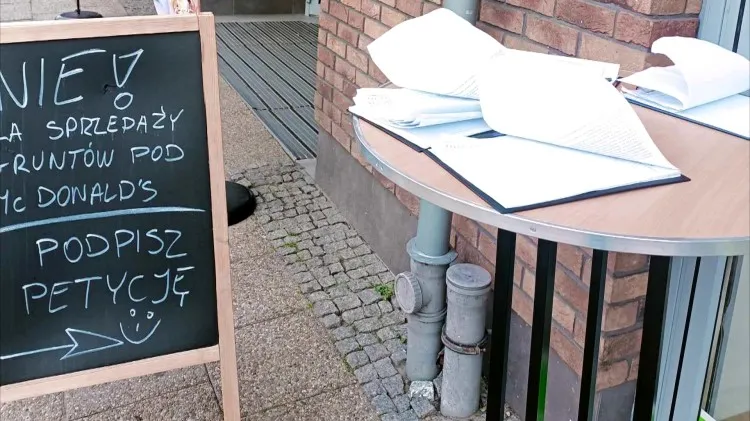 NIE!
LA SPRZEDAŻY
GRUNTÓW POD
Mc DONALD'S
PODPISZ
PETYCJĘ